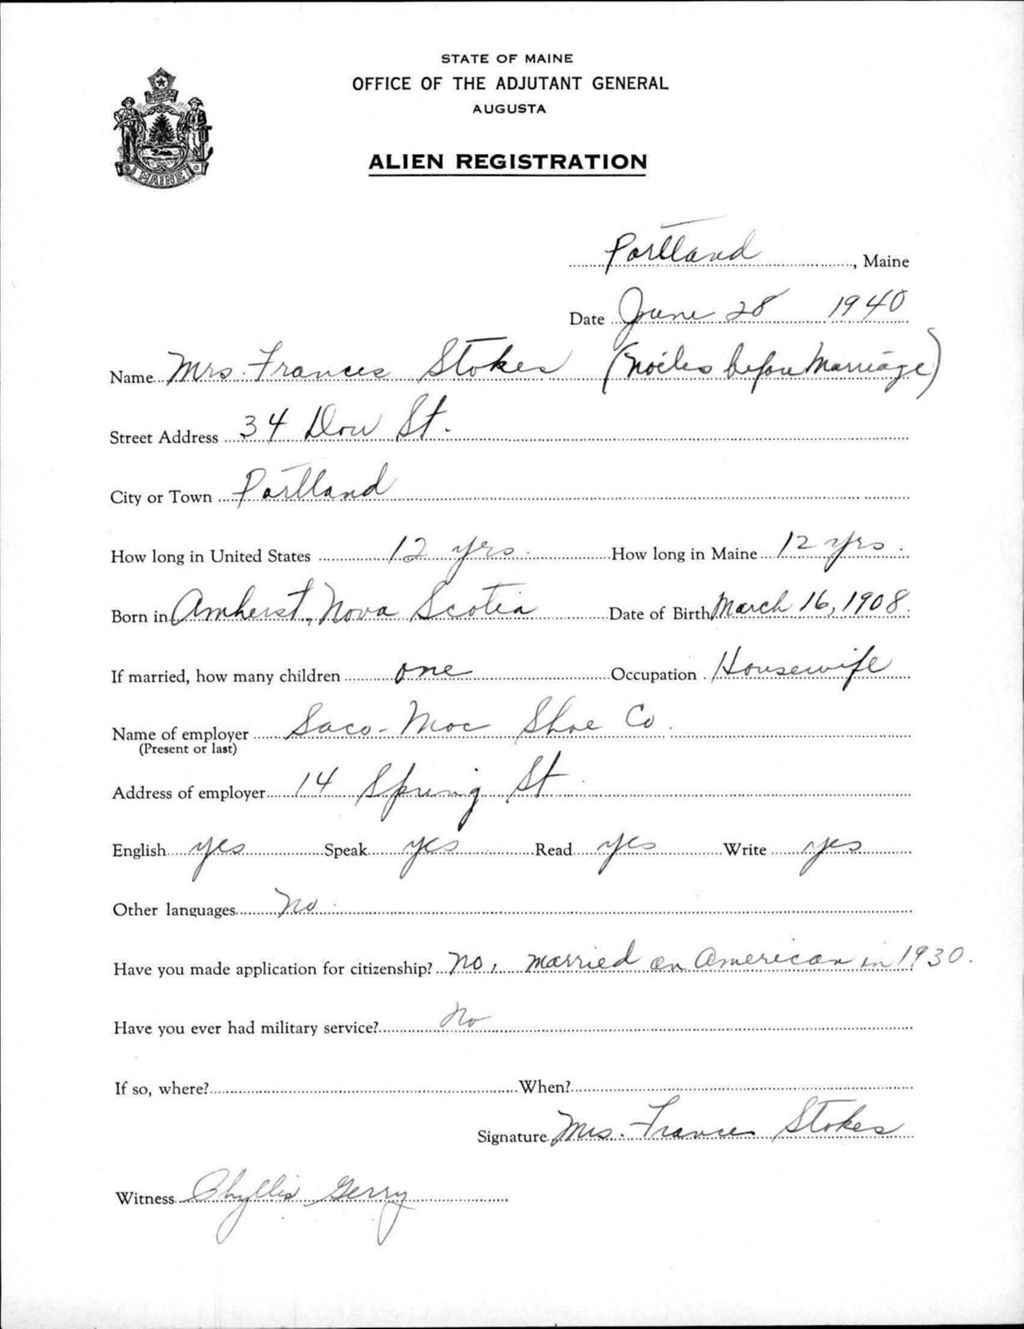 STATE OF MAINE
OFFICE OF THE ADJUTANT GENERAL
AUGUSTA
ALIEN REGISTRATION
MAINE
Portland, Maine
Date June 28 1940
Name Mrs. Frances Stokes (Noiles before Marriage)
Street Address 34 Dow St.
City or Town Portland
How long in United States 12 yrs. How long in Maine 12 yrs.
Born in Amherst, Nova Scotia Date of Birth March 16, 1908.
If married, how many children one Occupation Housewife
Name of employer Saco-Moc Shoe Co.
(Present or last)
Address of employer 14 Spring St
English yes Speak yes Read yes Write yes
Other languages No.
Have you made application for citizenship? No, married an American in 1930.
Have you ever had military service? No
If so, where? When?
Signature Mrs. Frances Stokes
Witness Phyllis Gerry